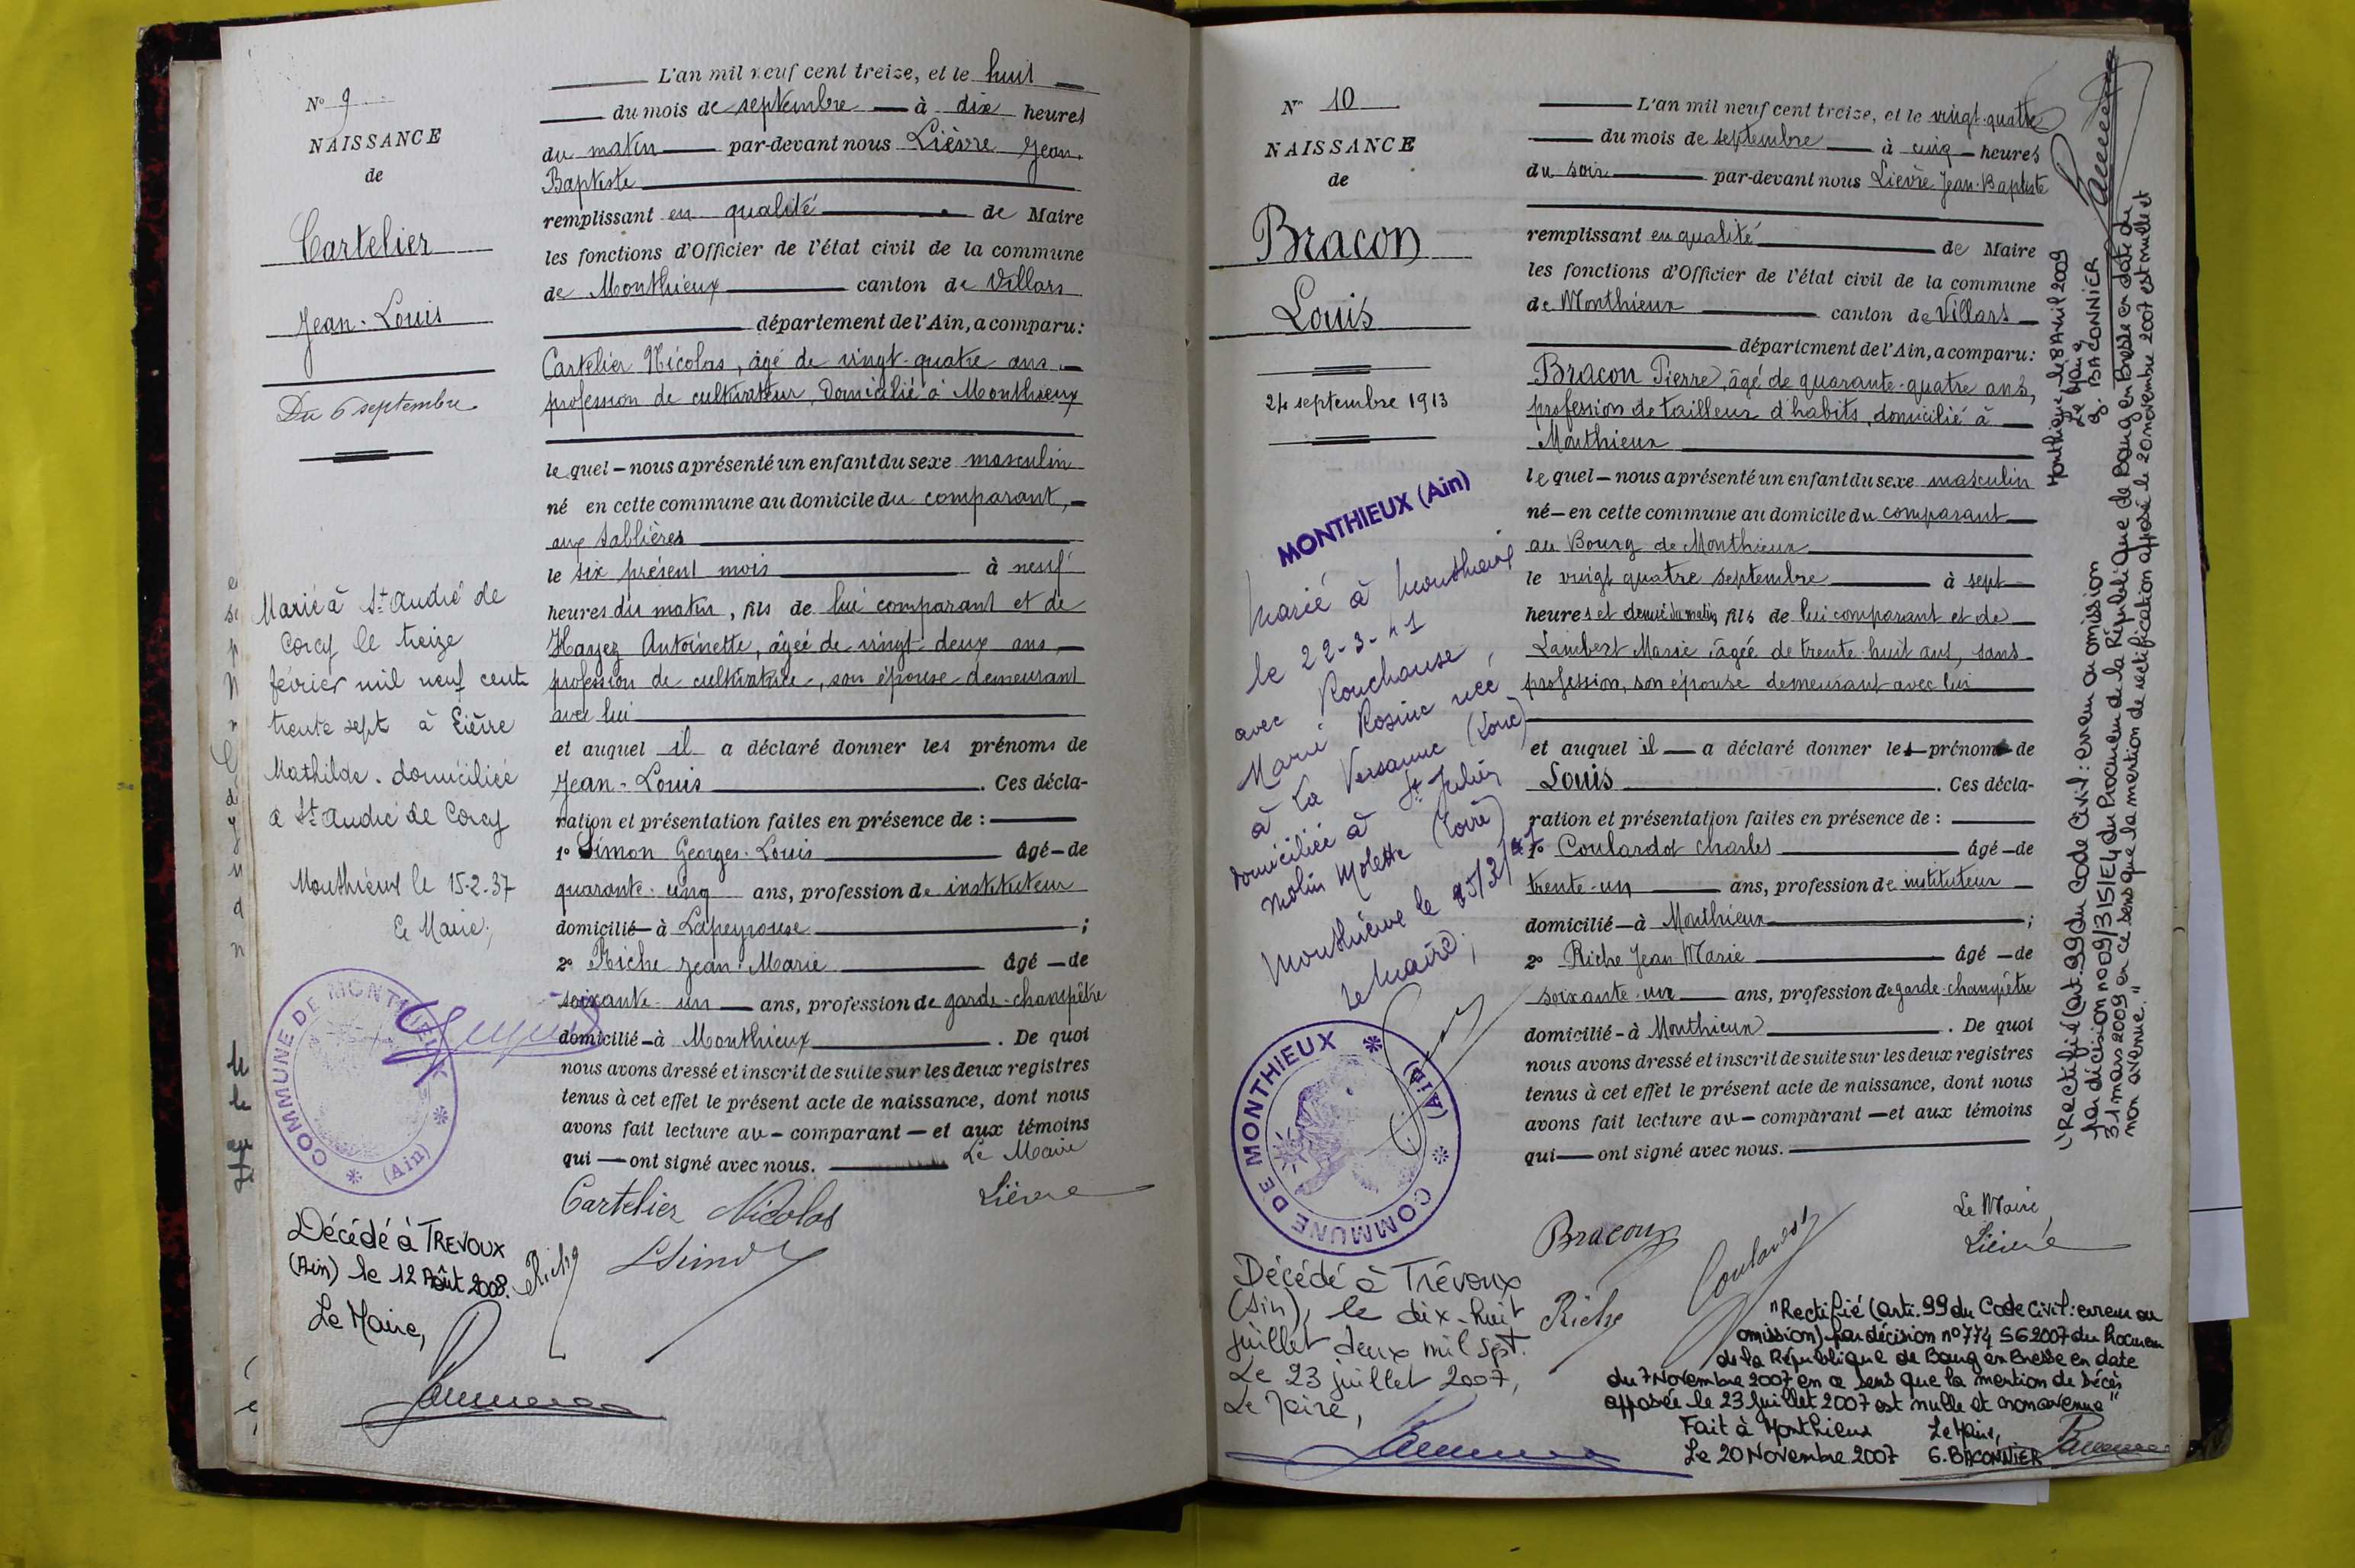 N° 9
NAISSANCE
de
Cartelier
Jean-Louis
Du 6 septembre
Marié à St André de
Corcy le treize
février mil neuf cent
trente sept à Lièvre
Mathilde. domiciliée
à St André de Corcy
Monthieux le 15-2-37
Le Maire,
COMMUNE DE MONTHIEUX
(Ain)
Décédé à TREVOUX
(Ain) le 12 Août 2008.
Le Maire,
L'an mil neuf cent treize, et le huit
du mois de septembre à dix heures
du matin par-devant nous Lièvre Jean-
Baptiste
remplissant en qualité de Maire
les fonctions d'Officier de l'état civil de la commune
de Monthieux canton de Villars
département de l'Ain, a comparu:
Cartelier Nicolas, âgé de vingt-quatre ans
profession de cultivateur, domicilié à Monthieux
le quel – nous a présenté un enfant du sexe masculin
né en cette commune au domicile du comparant,
aux Sablières
le six présent mois à neuf
heures du matin, fils de lui comparant et de
Hayez Antoinette, âgée de vingt-deux ans,
profession de cultivatrice, son épouse demeurant
avec lui
et auquel il a déclaré donner les prénoms de
Jean-Louis. Ces décla-
ration et présentation faites en présence de :
1° Simon Georges-Louis âgé – de
quarante-cinq ans, profession de instituteur
domicilié – à Lapeyrouse ;
2° Riche Jean-Marie âgé – de
soixante-un ans, profession de garde-champêtre
domicilié – à Monthieux. De quoi
nous avons dressé et inscrit de suite sur les deux registres
tenus à cet effet le présent acte de naissance, dont nous
avons fait lecture au – comparant – et aux témoins
qui – ont signé avec nous.
Le Maire
Cartelier Nicolas
Lièvre
Riche
LSimon
N° 10
NAISSANCE
de
Bracon
Louis
24 septembre 1913
MONTHIEUX (Ain)
Marié à Monthieux
le 22-3-41
avec Rouchouse
Marie Rosine née
à La Versanne (Loire)
domiciliée à St Julien
Molin Molette (Loire)
Monthieux le 25/3/41
Le Maire,
COMMUNE DE MONTHIEUX
(Ain)
Décédé à Trévoux
(Ain), le dix-huit
juillet deux mil sept.
Le 23 juillet 2007,
Le Maire,
L'an mil neuf cent treize, et le vingt-quatre
du mois de septembre à cinq heures
du soir par-devant nous Lièvre Jean-Baptiste
remplissant en qualité de Maire
les fonctions d'Officier de l'état civil de la commune
de Monthieux canton de Villars
département de l'Ain, a comparu:
Bracon Pierre, âgé de quarante-quatre ans,
profession de tailleur d'habits, domicilié à
Monthieux
le quel – nous a présenté un enfant du sexe masculin
né – en cette commune au domicile du comparant
au Bourg de Monthieux
le vingt quatre septembre à sept
heures et demie du matin, fils de lui comparant et de
Lambert Marie âgée de trente-huit ans, sans
profession, son épouse demeurant avec lui
et auquel il a déclaré donner les prénoms de
Louis. Ces décla-
ration et présentation faites en présence de :
1° Coulardot Charles âgé – de
trente-un ans, profession de instituteur
domicilié – à Monthieux ;
2° Riche Jean Marie âgé – de
soixante-un ans, profession de garde-champêtre
domicilié – à Monthieux. De quoi
nous avons dressé et inscrit de suite sur les deux registres
tenus à cet effet le présent acte de naissance, dont nous
avons fait lecture au – comparant – et aux témoins
qui – ont signé avec nous.
Le Maire,
Lièvre
Bracon
Coulardot
Riche
"Rectifié (art. 99 du Code Civil: erreur ou
omission) par décision n° 774 SG2007 du Procureur
de la République de Bourg en Bresse en date
du 7 Novembre 2007 en ce sens que la mention de décès
apposée le 23 Juillet 2007 est nulle et non avenue"
Fait à Monthieux
Le 20 Novembre 2007
Le Maire,
G. BACONNIER
"Rectifié (art. 99 du Code Civil: erreur ou omission
par décision n° 09/315/E4 du Procureur de la République de Bourg en Bresse en date du
31 mars 2009 en ce sens que la mention de rectification apposée le 20 novembre 2007 est nulle et
non avenue."
Monthieux le 8 Avril 2009
Le Maire
G. BACONNIER